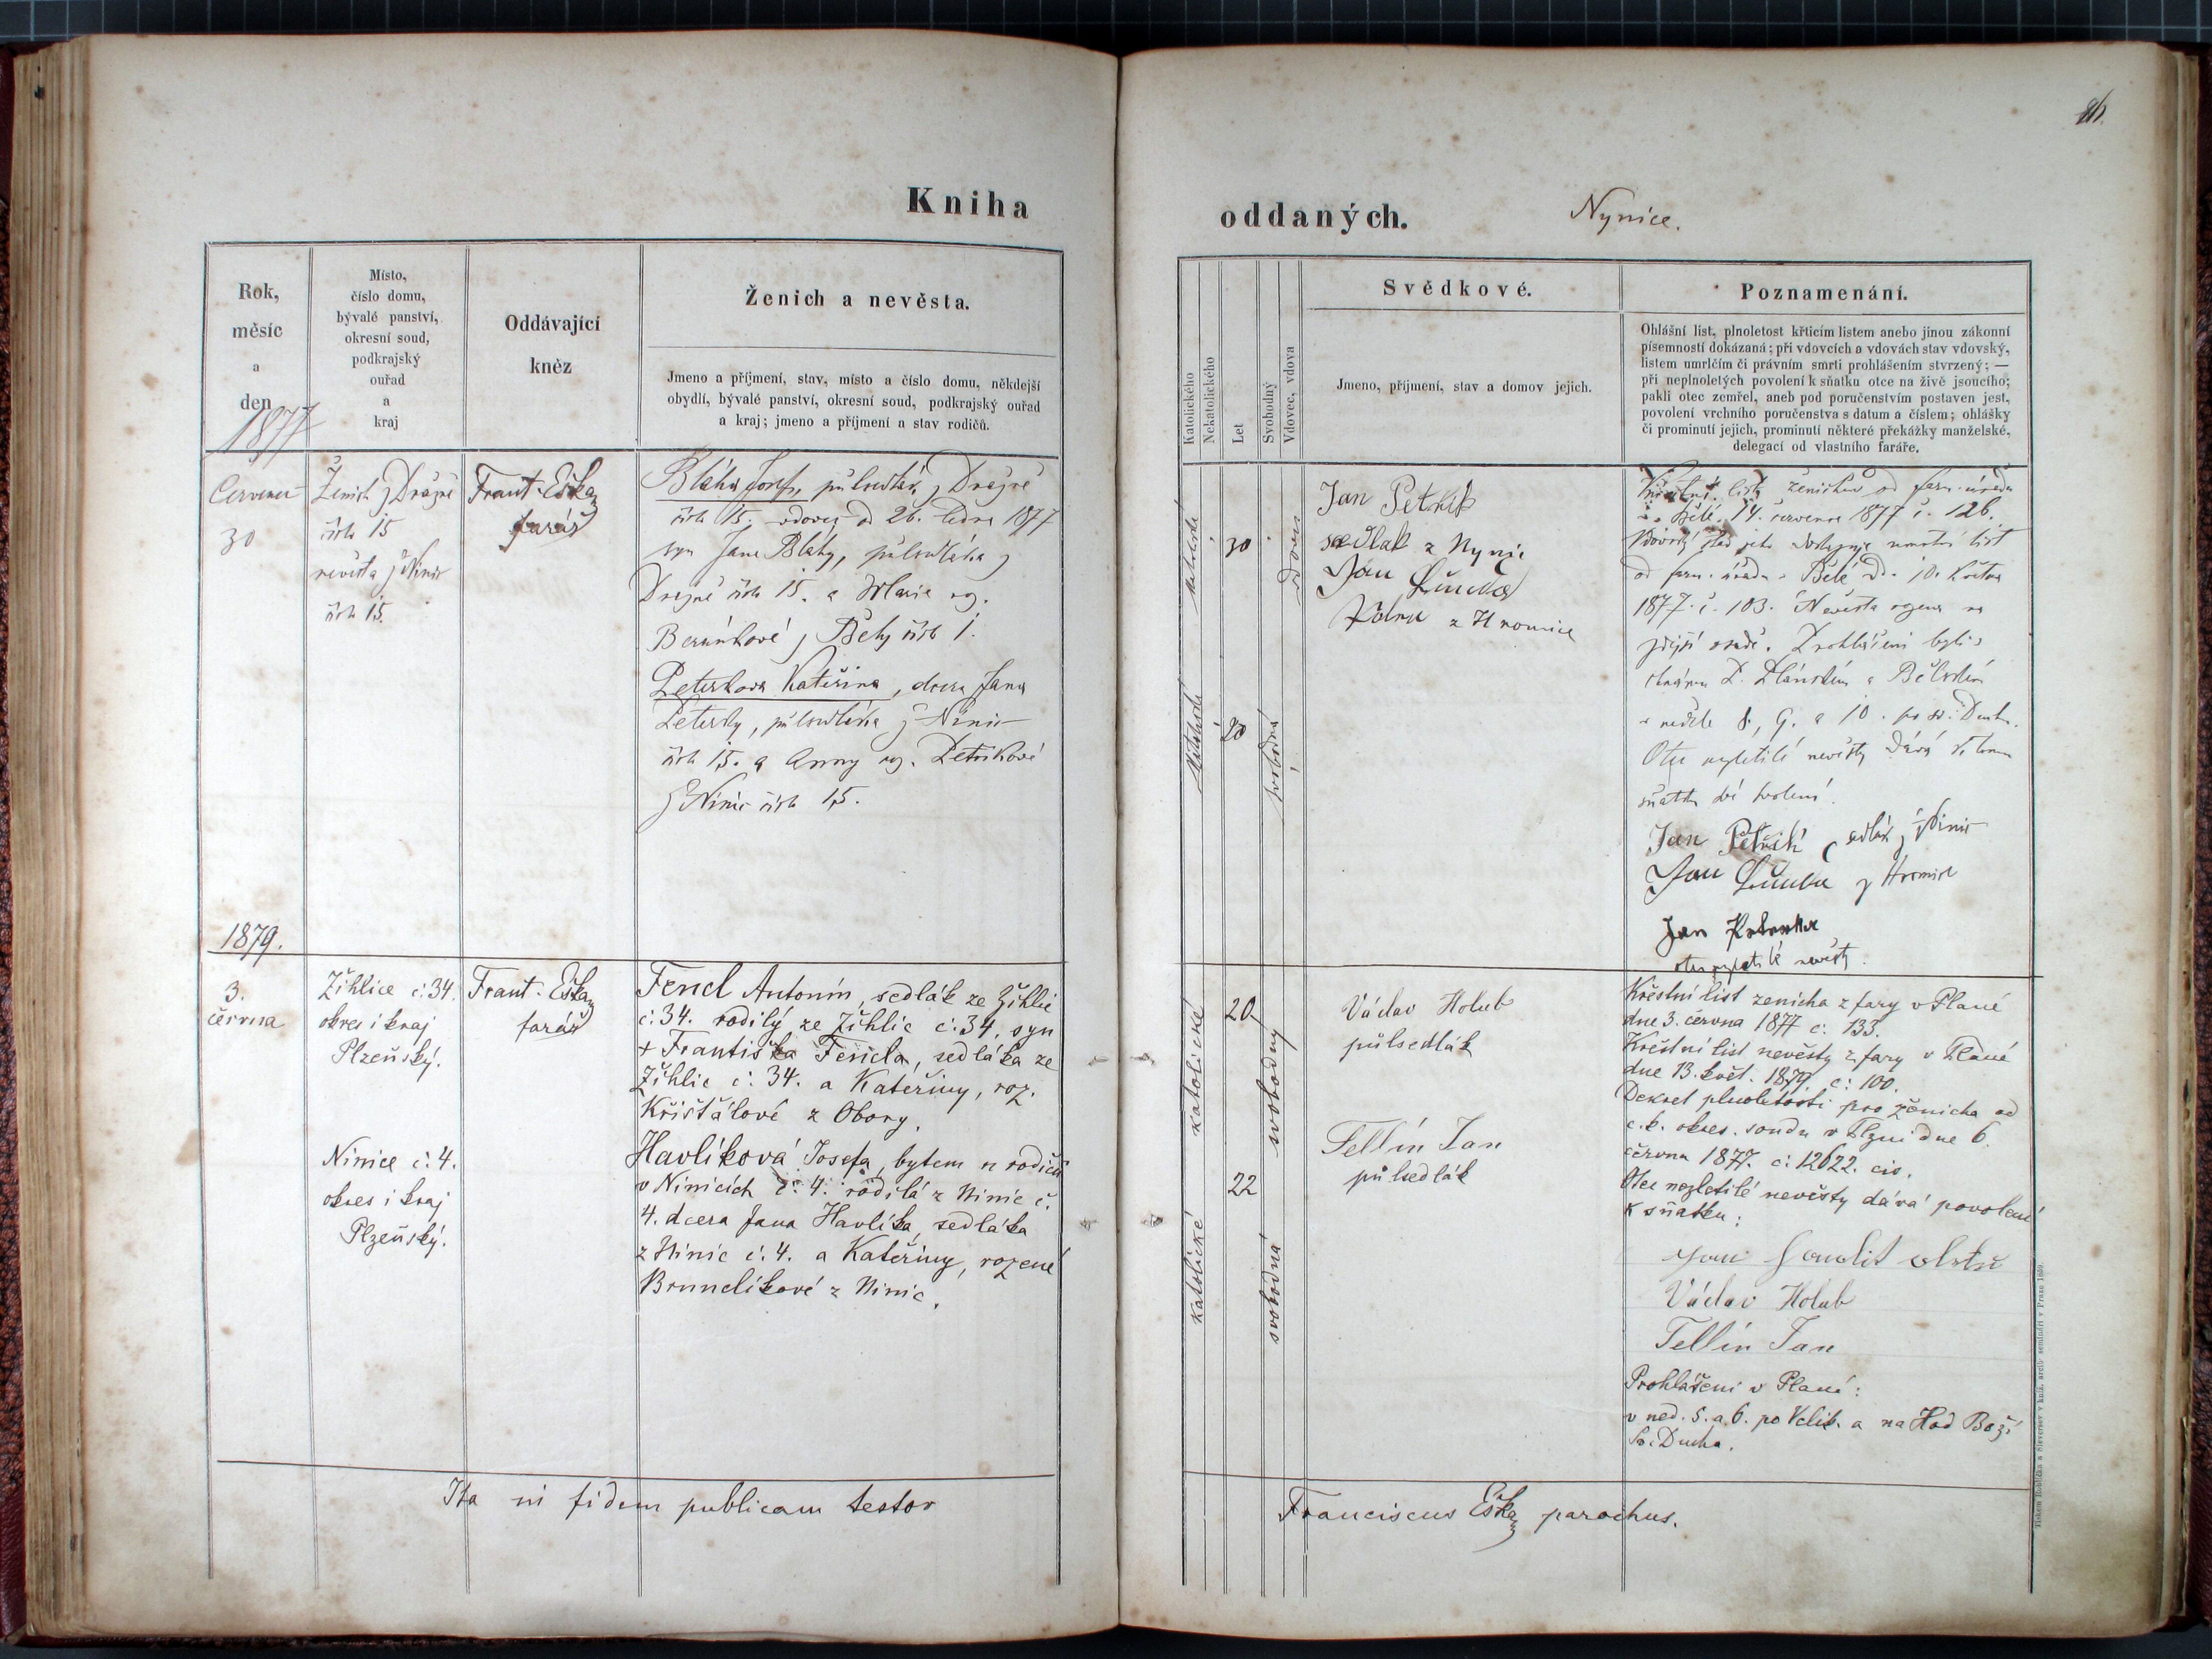 Kniha
oddaných.
Nynice.
Rok,
měsíc
a
den
1877
Místo,
číslo domu,
bývalé panství,
okresní soud,
podkrajský
ouřad
a
kraj
Oddávající
kněz
Ženich a nevěsta.
Jmeno a příjmení, stav, místo a číslo domu, někdejší
obydlí, bývalé panství, okresní soud, podkrajský ouřad
a kraj; jmeno a příjmení a stav rodičů.
Katolického
Nekatolického
Let
Svobodný
Vdovec, vdova
Svědkové.
Jmeno, příjmení, stav a domov jejich.
Poznamenání.
Ohlášní list, plnoletost křticím listem anebo jinou zákonní
písemností dokázaná; při vdovcích a vdovách stav vdovský,
listem umrlčím či právním smrti prohlášením stvrzený; —
při neplnoletých povolení k sňatku otce na živě jsoucího;
pakli otec zemřel, aneb pod poručenstvím postaven jest,
povolení vrchního poručenstva s datum a číslem; ohlášky
či prominutí jejich, prominutí některé překážky manželské,
delegací od vlastního faráře.
30
Ženich z
15
nevěsta z Ninic
15.
Frant. Eška
farář
Bláha Josef, půlsedlák z
15. vdovec od 26. ledna 1877
syn Jana Bláhy, půlsedláka z
15. a Marie roz.
z Bělý 1.
Kateřina, dcera Jana
půlsedláka z Ninic
15. a Anny roz.
z Ninic 15.
30
20
svobodná
Jan
sedlak z Nynic
Jan
z Hromice
listu ženichův od farn. úřadu
14. července 1877 č. 126.
od farn. úřadu v Bělé 10. května
1877 č. 103. Nevěsta
zdejší osadě. Prohlášeni byli
v neděle 8, 9. a 10. po sv. Duchu.
Otec nezletilé nevěsty dává k tomu
sňatku své svolení.
Jan sedlák z Ninic
Jan z Hromice
Jan
otec nezletilé nevěsty.
1879.
3.
června
Žihlice č. 34.
okres i kraj
Plzeňský.
Frant. Eška
farář
Fencl Antonín, sedlák ze Žihlic
č. 34. rodilý ze Žihlic č. 34, syn
+ Františka Fencla, sedláka ze
Žihlic č. 34. a Kateřiny, roz.
Křišťálové z Obory.
Ninice č. 4.
okres i kraj
Plzeňský.
Havlíková Josefa, bytem u rodičů
v Ninicích č. 4. rodilá z Ninic č.
4. dcera Jana Havlíka, sedláka
z Ninic č. 4. a Kateřiny, rozené
Brunclíkové z Ninic.
katolické
20
svobodný
katolické
22
svobodná
Václav Holub
půlsedlák
Fellín Jan
půlsedlák
Křestní list ženicha z fary v Plané
dne 3. června 1877 č. 133.
Křestní list nevěsty z fary v Plané
dne 13. květ. 1879. č. 100.
Dekret plnoletosti pro ženicha od
c. k. okres. soudu v Plzni dne 6.
června 1877. č. 12622. civ.
Otec nezletilé nevěsty dává povolení
k sňatku:
Václav Holub
Fellín Jan
Prohlášeni v Plané:
v ned. 5. a 6. po Velik. a na Hod Boží
Sv. Ducha.
Ita in fidem publicam testor
Franciscus Eška parochus.